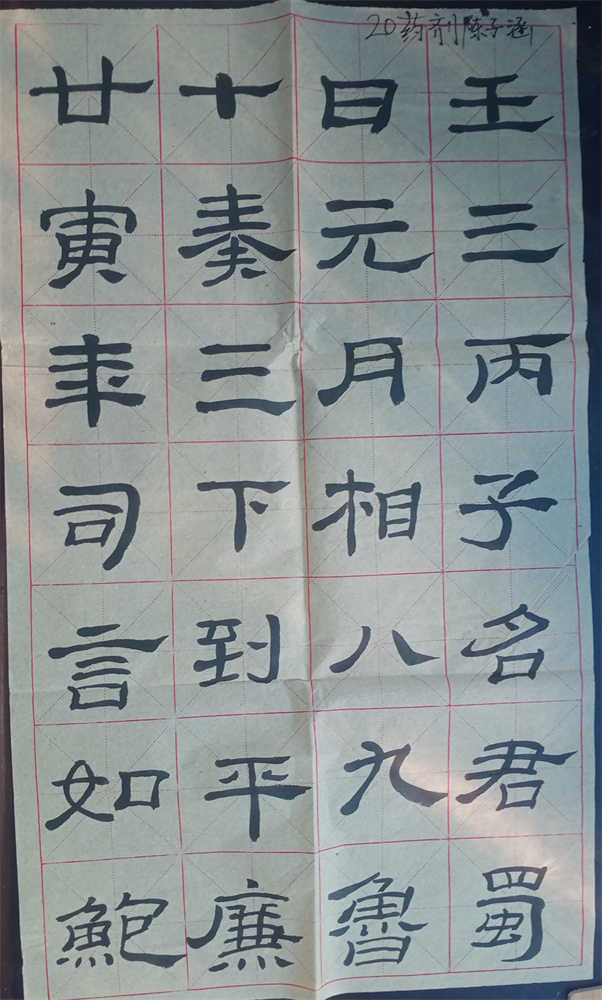 20药剂陈子涵
王三丙子名君蜀
日元月相八九魯
十奏三下到平廉
廿寅年司言如鮑